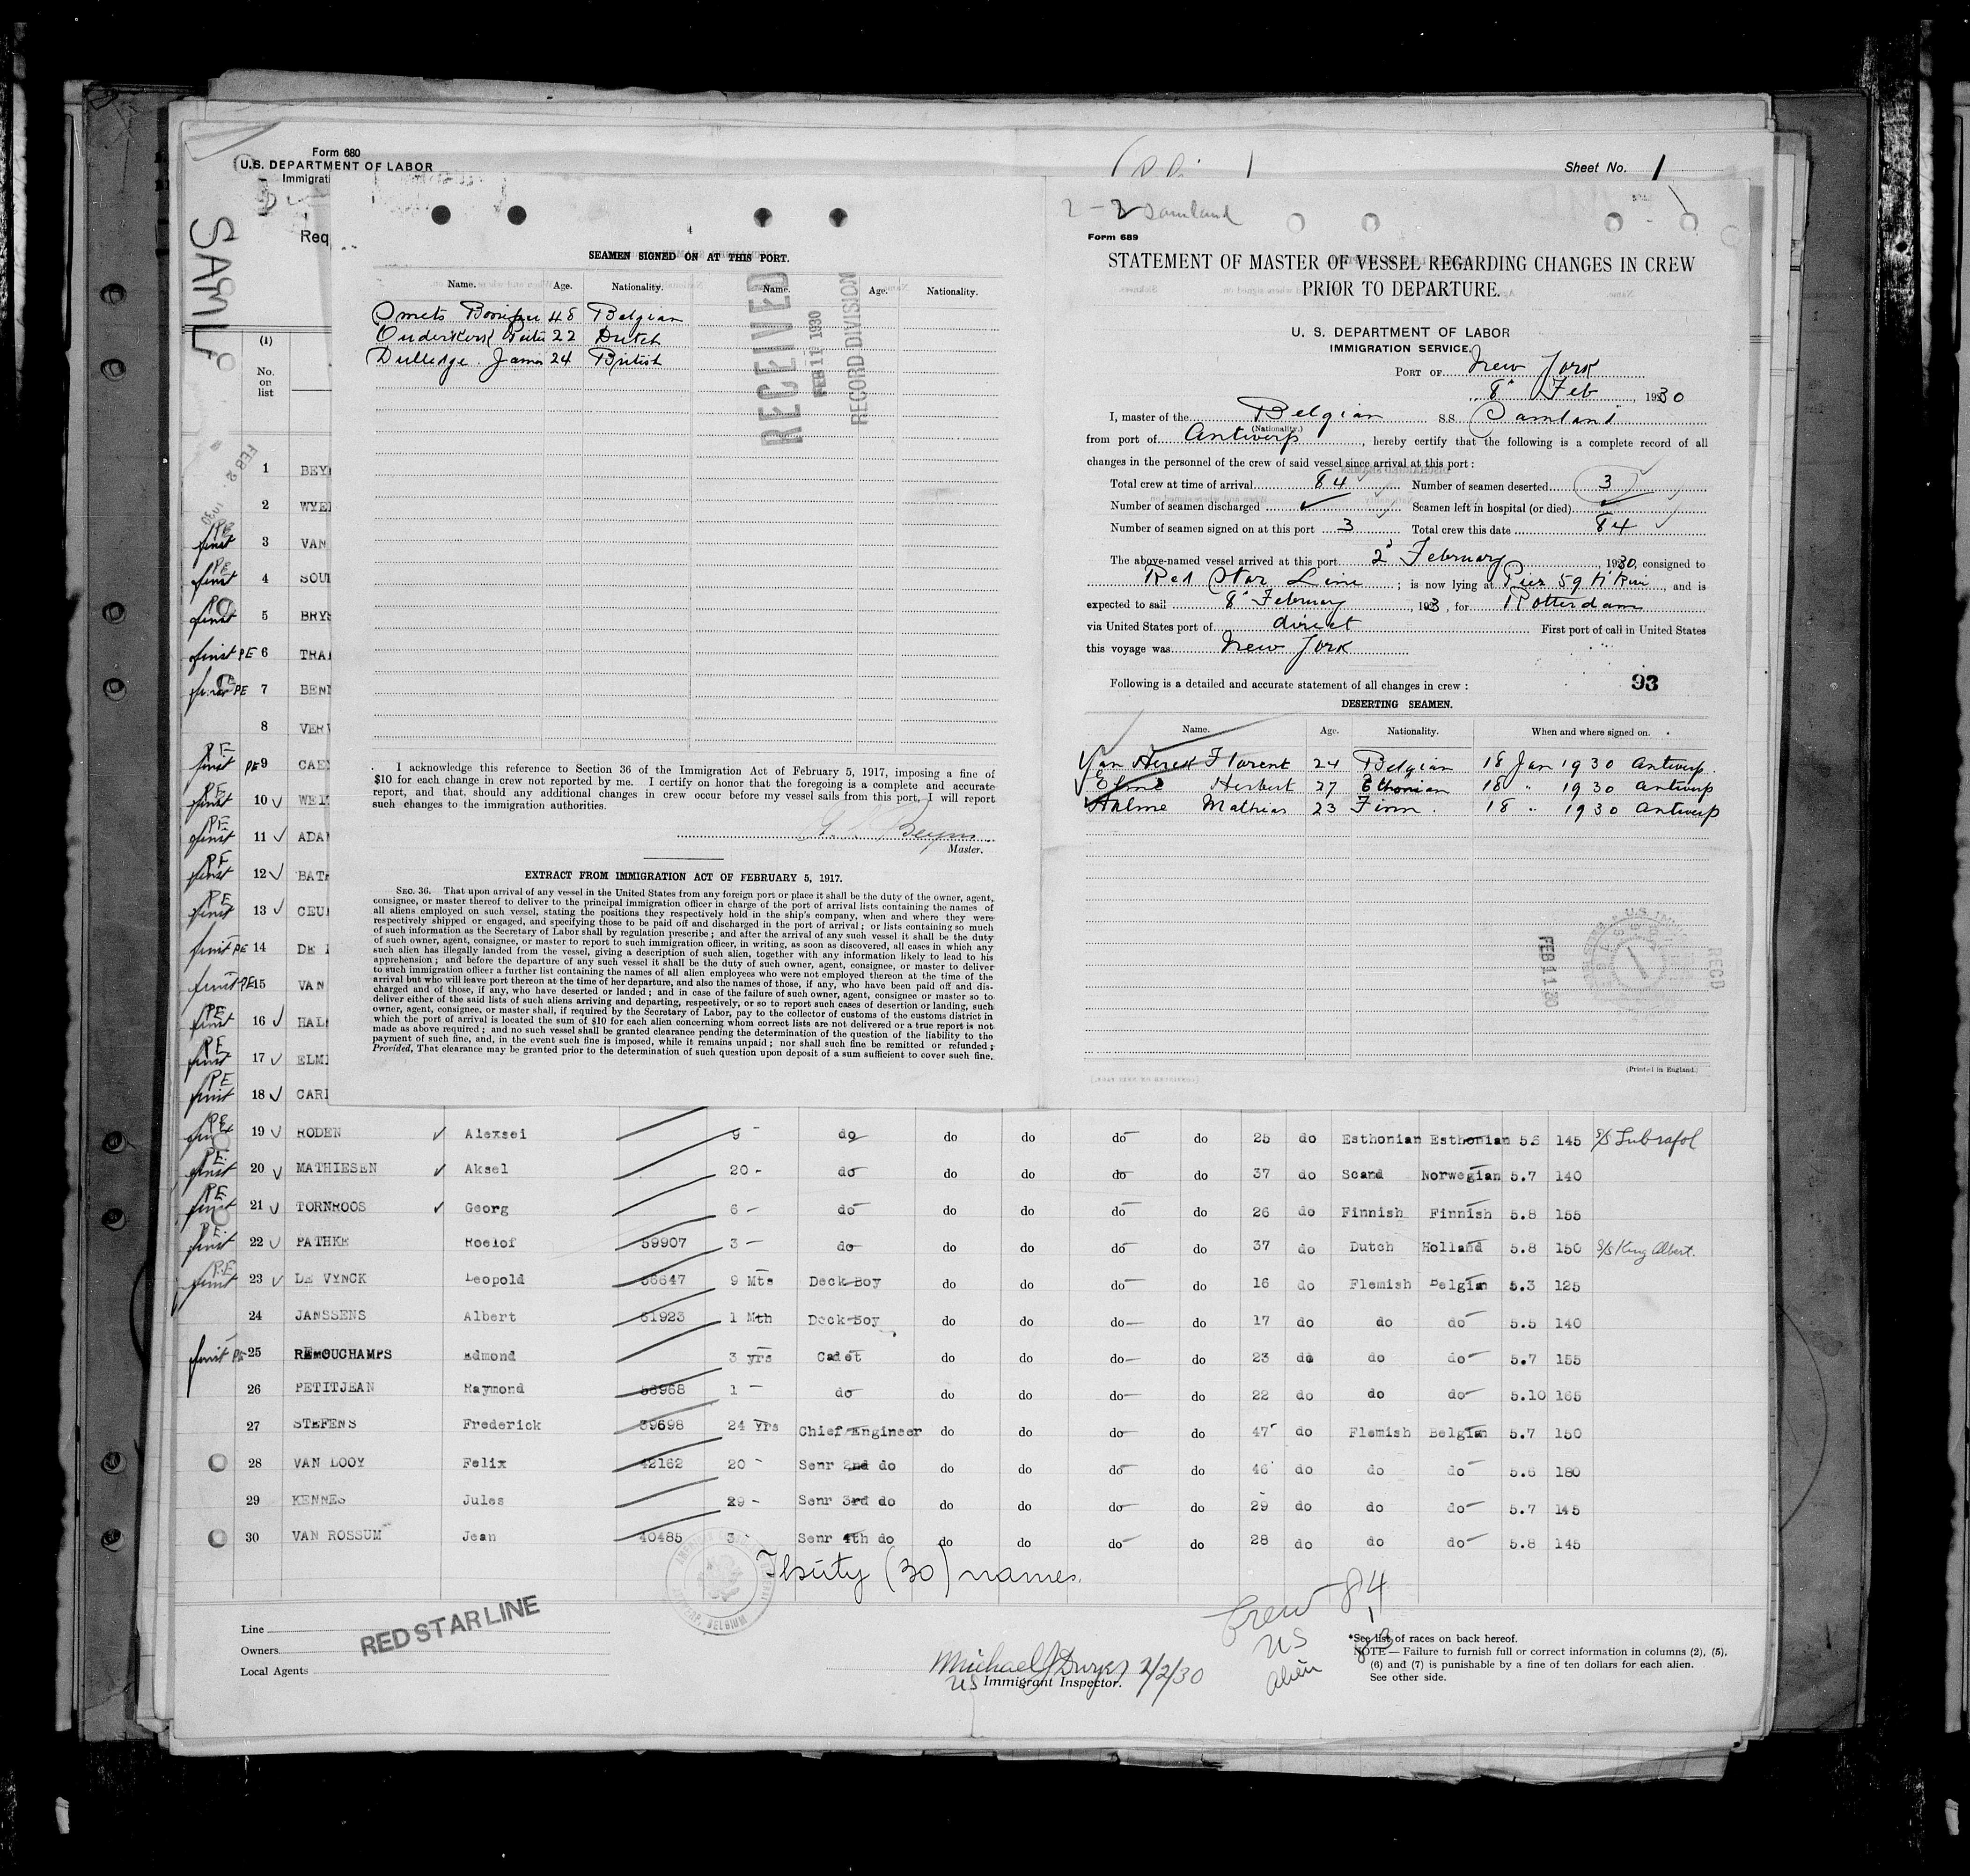 Form 680
U.S. DEPARTMENT OF LABOR
Immigrati
Req
Sheet No. 1
SAML
(1)
No.
on
list
FEB 2 1930
1 BEY
2 WYE
PE first 3 VAN
PE first 4 SOU
first 5 BRYS
first PE 6 TRA
PE 7 BEN
8 VER
PE first PE 9 CAE
PE first 10 ✓ WE
PE first 11 ✓ ADA
PE first 12 ✓ BAT
PE first 13 ✓ CEU
first PE 14 DE
first PE 15 VAN
PE first 16 ✓ HAL
PE first 17 ✓ ELM
PE first 18 ✓ CAR
SEAMEN SIGNED ON AT THIS PORT.
Name. Age. Nationality. Name. Age. Nationality.
Smets 48 Belgian
Ouderkerk Pieter 22 Dutch
Dulledge. James 24 British
RECEIVED
FEB 11 1930
RECORD DIVISION
I acknowledge this reference to Section 36 of the Immigration Act of February 5, 1917, imposing a fine of
$10 for each change in crew not reported by me. I certify on honor that the foregoing is a complete and accurate
report, and that, should any additional changes in crew occur before my vessel sails from this port, I will report
such changes to the immigration authorities.
Master.
EXTRACT FROM IMMIGRATION ACT OF FEBRUARY 5, 1917.
SEC. 36. That upon arrival of any vessel in the United States from any foreign port or place it shall be the duty of the owner, agent,
consignee, or master thereof to deliver to the principal immigration officer in charge of the port of arrival lists containing the names of
all aliens employed on such vessel, stating the positions they respectively hold in the ship's company, when and where they were
respectively shipped or engaged, and specifying those to be paid off and discharged in the port of arrival; or lists containing so much
of such information as the Secretary of Labor shall by regulation prescribe; and after the arrival of any such vessel it shall be the duty
of such owner, agent, consignee, or master to report to such immigration officer, in writing, as soon as discovered, all cases in which any
such alien has illegally landed from the vessel, giving a description of such alien, together with any information likely to lead to his
apprehension; and before the departure of any such vessel it shall be the duty of such owner, agent, consignee, or master to deliver
to such immigration officer a further list containing the names of all alien employees who were not employed thereon at the time of the
arrival but who will leave port thereon at the time of her departure, and also the names of those, if any, who have been paid off and dis-
charged and of those, if any, who have deserted or landed; and in case of the failure of such owner, agent, consignee or master so to
deliver either of the said lists of such aliens arriving and departing, respectively, or so to report such cases of desertion or landing, such
owner, agent, consignee, or master shall, if required by the Secretary of Labor, pay to the collector of customs of the customs district in
which the port of arrival is located the sum of $10 for each alien concerning whom correct lists are not delivered or a true report is not
made as above required; and no such vessel shall be granted clearance pending the determination of the question of the liability to the
payment of such fine, and, in the event such fine is imposed, while it remains unpaid; nor shall such fine be remitted or refunded;
Provided, That clearance may be granted prior to the determination of such question upon deposit of a sum sufficient to cover such fine.
2-2 Samland
Form 689
STATEMENT OF MASTER OF VESSEL REGARDING CHANGES IN CREW
PRIOR TO DEPARTURE.
U. S. DEPARTMENT OF LABOR
IMMIGRATION SERVICE.
PORT OF New York
8' Feb, 1930
I, master of the Belgian S.S. Samland
(Nationality.)
from port of Antwerp, hereby certify that the following is a complete record of all
changes in the personnel of the crew of said vessel since arrival at this port:
Total crew at time of arrival 84 Number of seamen deserted 3
Number of seamen discharged ✓ Seamen left in hospital (or died) ✓
Number of seamen signed on at this port 3 Total crew this date 84
The above-named vessel arrived at this port 2' February, 1930, consigned to
Red Star Line; is now lying at Pier 59 N' River, and is
expected to sail 8' February, 193, for Rotterdam
via United States port of direct First port of call in United States
this voyage was New York
Following is a detailed and accurate statement of all changes in crew: 93
DESERTING SEAMEN.
Name. Age. Nationality. When and where signed on.
Florent 24 Belgian 18 Jan 1930 Antwerp.
Herbert 27 Ethonian 18 " 1930 Antwerp
Halme Mathias 23 Finn. 18 " 1930 Antwerp
FEB 11 30
RECD
(Printed in England.)
PE first 19 ✓ RODEN ✓ Alexsei 9 - do do do do do 25 do Esthonian Esthonian 5.8 145
PE first 20 ✓ MATHIESEN ✓ Aksel 20 - do do do do do 37 do Scand Norwegian 5.7 140
PE first 21 ✓ TORNROOS ✓ Georg 6 - do do do do do 26 do Finnish Finnish 5.8 155
PE first 22 ✓ PATHKE Roelof 59907 3 - do do do do do 37 do Dutch Holland 5.8 150 S/S King Albert.
PE first 23 ✓ DE VYNCK Leopold 56647 9 Mts Deck Boy do do do do 16 do Flemish Belgian 5.3 125
24 JANSSENS Albert 61923 1 Mth Deck Boy do do do do 17 do do do 5.5 140
first PE 25 REMOUCHAMPS Edmond 3 yrs Cadet do do do do 23 do do do 5.7 155
26 PETITJEAN Raymond 58968 1 - do do do do do 22 do do do 5.10 165
27 STEFENS Frederick 39698 24 Yrs Chief Engineer do do do do 47 do Flemish Belgian 5.7 150
28 VAN LOOY Felix 42162 20 - Senr 2nd do do do do do 46 do do do 5.6 180
29 KENNES Jules 29 - Senr 3rd do do do do do 29 do do do 5.7 145
30 VAN ROSSUM Jean 40485 3 - Senr 4th do do do do do 28 do do do 5.8 145
Thirty (30) names.
ANTWERP, BELGIUM
Crew 84
US 1
Alien 83
Line
Owners
Local Agents
RED STAR LINE
Michael J Dwyer 2/2/30
US Immigrant Inspector.
*See list of races on back hereof.
NOTE—Failure to furnish full or correct information in columns (2), (5),
(6) and (7) is punishable by a fine of ten dollars for each alien.
See other side.